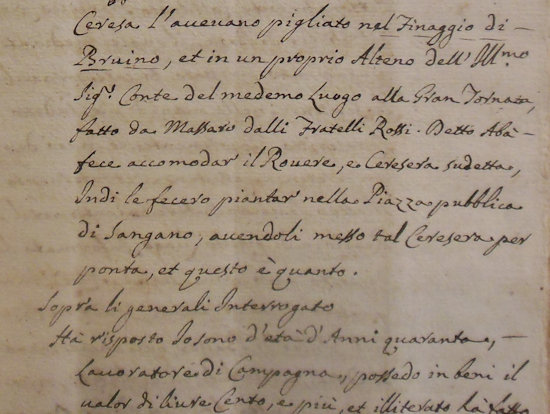 Ceresa l'avevano pigliato nel Finaggio di-
Bruino, et in un proprio Alteno dell' Ill.mo
Sig.r Conte del medemo Luogo alla Gran Tornata,
fatto da Massaro dalli Fratelli Rossi. Detto Abà-
fece accomodar il Rovere, e Ceresera sudetta,
Indi le fecero piantar nella Piazza pubblica
di Sangano, avendoli messo tal Ceresera per
ponta, et questo è quanto.
Sopra li generali Interrogato
Hà risposto Io sono d'età d'Anni quaranta, -
Lavoratore di Campagna, possedo in beni il
valor di livre Cento, e più, et illiterato hà fatto